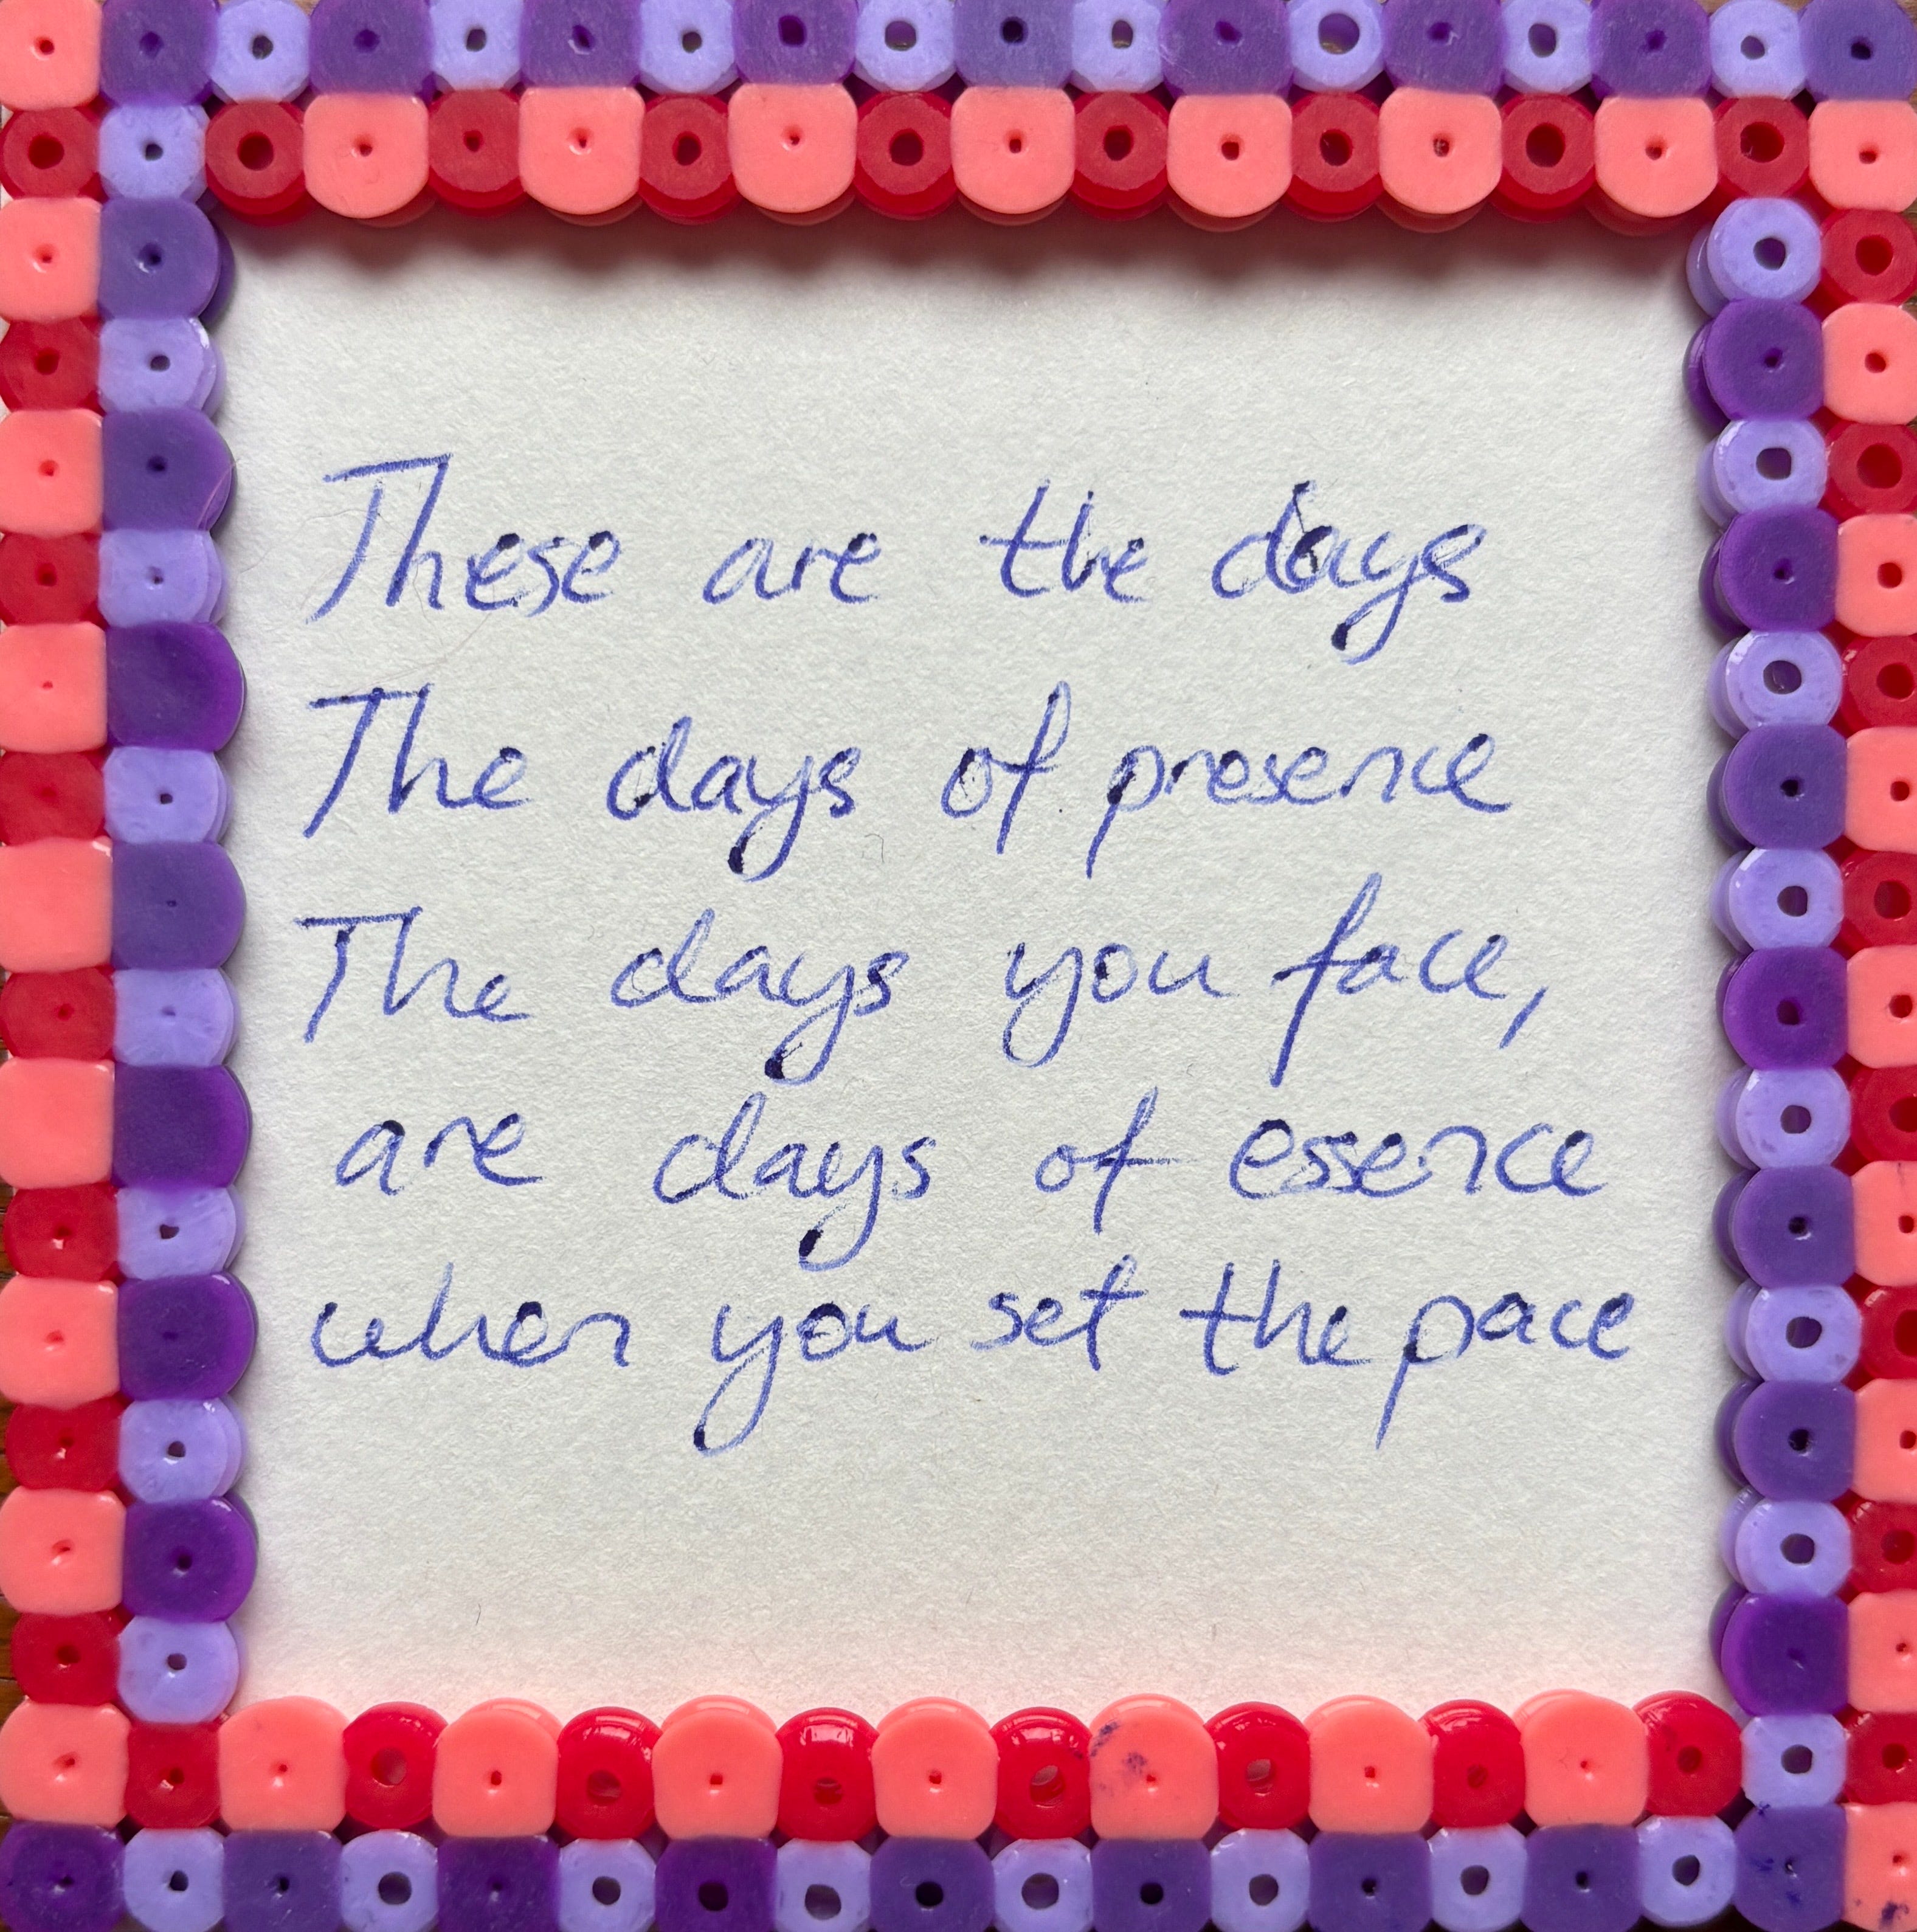 These are the days
The days of presence
The days you face,
are days of essence
when you set the pace